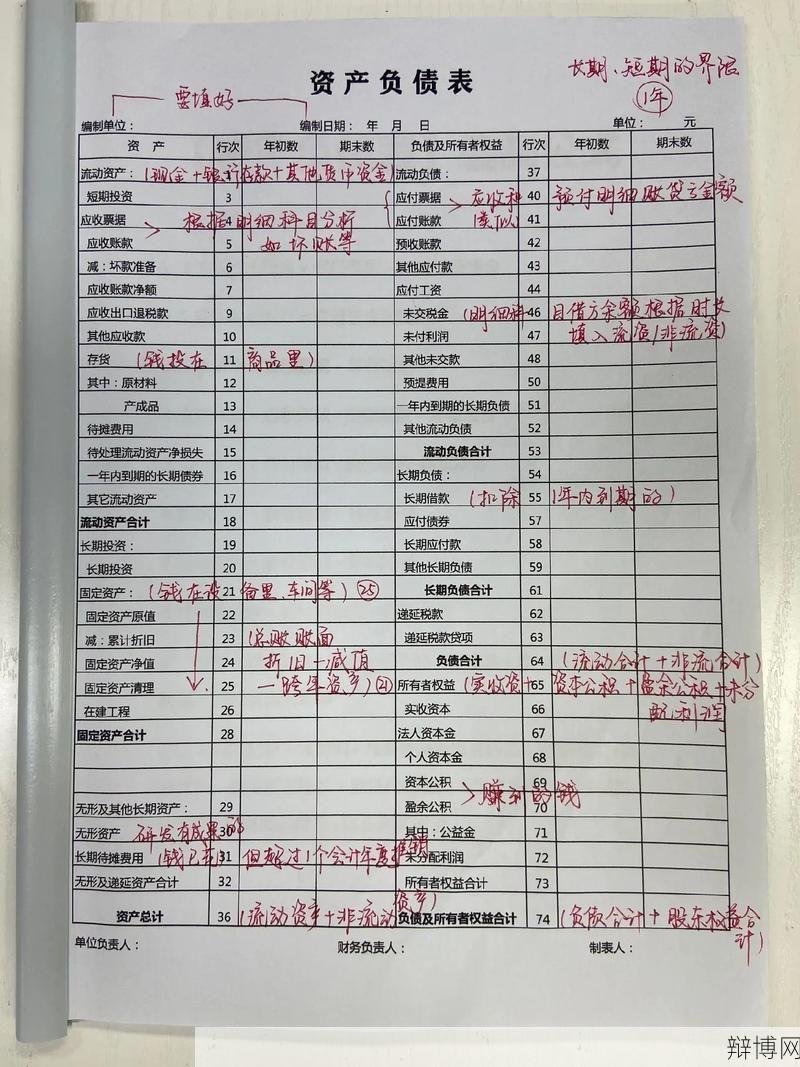 长期、短期的界限
1年
要填好
资产负债表
编制单位： 编制日期： 年 月 日 单位： 元
资 产 行次 年初数 期末数 负债及所有者权益 行次 年初数 期末数
流动资产： (现金+银行存款+其他货币资金) 流动负债： 37
短期投资 3 应付票据 40 应收和 预付明细账贷方金额
应收票据 4 根据明细科目分析 应付账款 41 类似
应收账款 5 如坏账等 预收账款 42
减：坏款准备 6 其他应付款 43
应收账款净额 7 应付工资 44
应收出口退税款 9 未交税金 46 (明细科目借方余额根据时长
其他应收款 10 未付利润 47 填入流资/非流资)
存货 11 (钱投在商品里) 其他未交款 48
其中：原材料 12 预提费用 50
产成品 13 一年内到期的长期负债 51
待摊费用 14 其他流动负债 52
待处理流动资产净损失 15 流动负债合计 53
一年内到期的长期债券 16 长期负债： 54
其它流动资产 17 长期借款 55 (扣除1年内到期的)
流动资产合计 18 应付债券 57
长期投资： 19 长期应付款 58
长期投资 20 其他长期负债 59
固定资产： 21 (钱在设备里、车间等) 25 长期负债合计 61
固定资产原值 22 递延税款 62
减：累计折旧 23 (总账账面 递延税款贷项 63
固定资产净值 24 折旧-减值 负债合计 64 (流动合计+非流合计)
固定资产清理 25 一跨年资产) 21 所有者权益 65 (实收资+资本公积+盈余公积+未分
在建工程 26 实收资本 66 配利润
固定资产合计 28 法人资本金 67
个人资本金 68
资本公积 69
无形及其他长期资产： 29 盈余公积 70 赚到的钱
无形资产 30 研发有成果的 其中：公益金 71
长期待摊费用 31 (钱已花 但超过1个会计年度摊销 未分配利润 72
无形及递延资产合计 32 所有者权益合计 73
资产总计 36 (流动资产+非流动资产) 负债及所有者权益合计 74 (负债合计+股东权益合计)
单位负责人： 财务负责人： 制表人：
辩博网